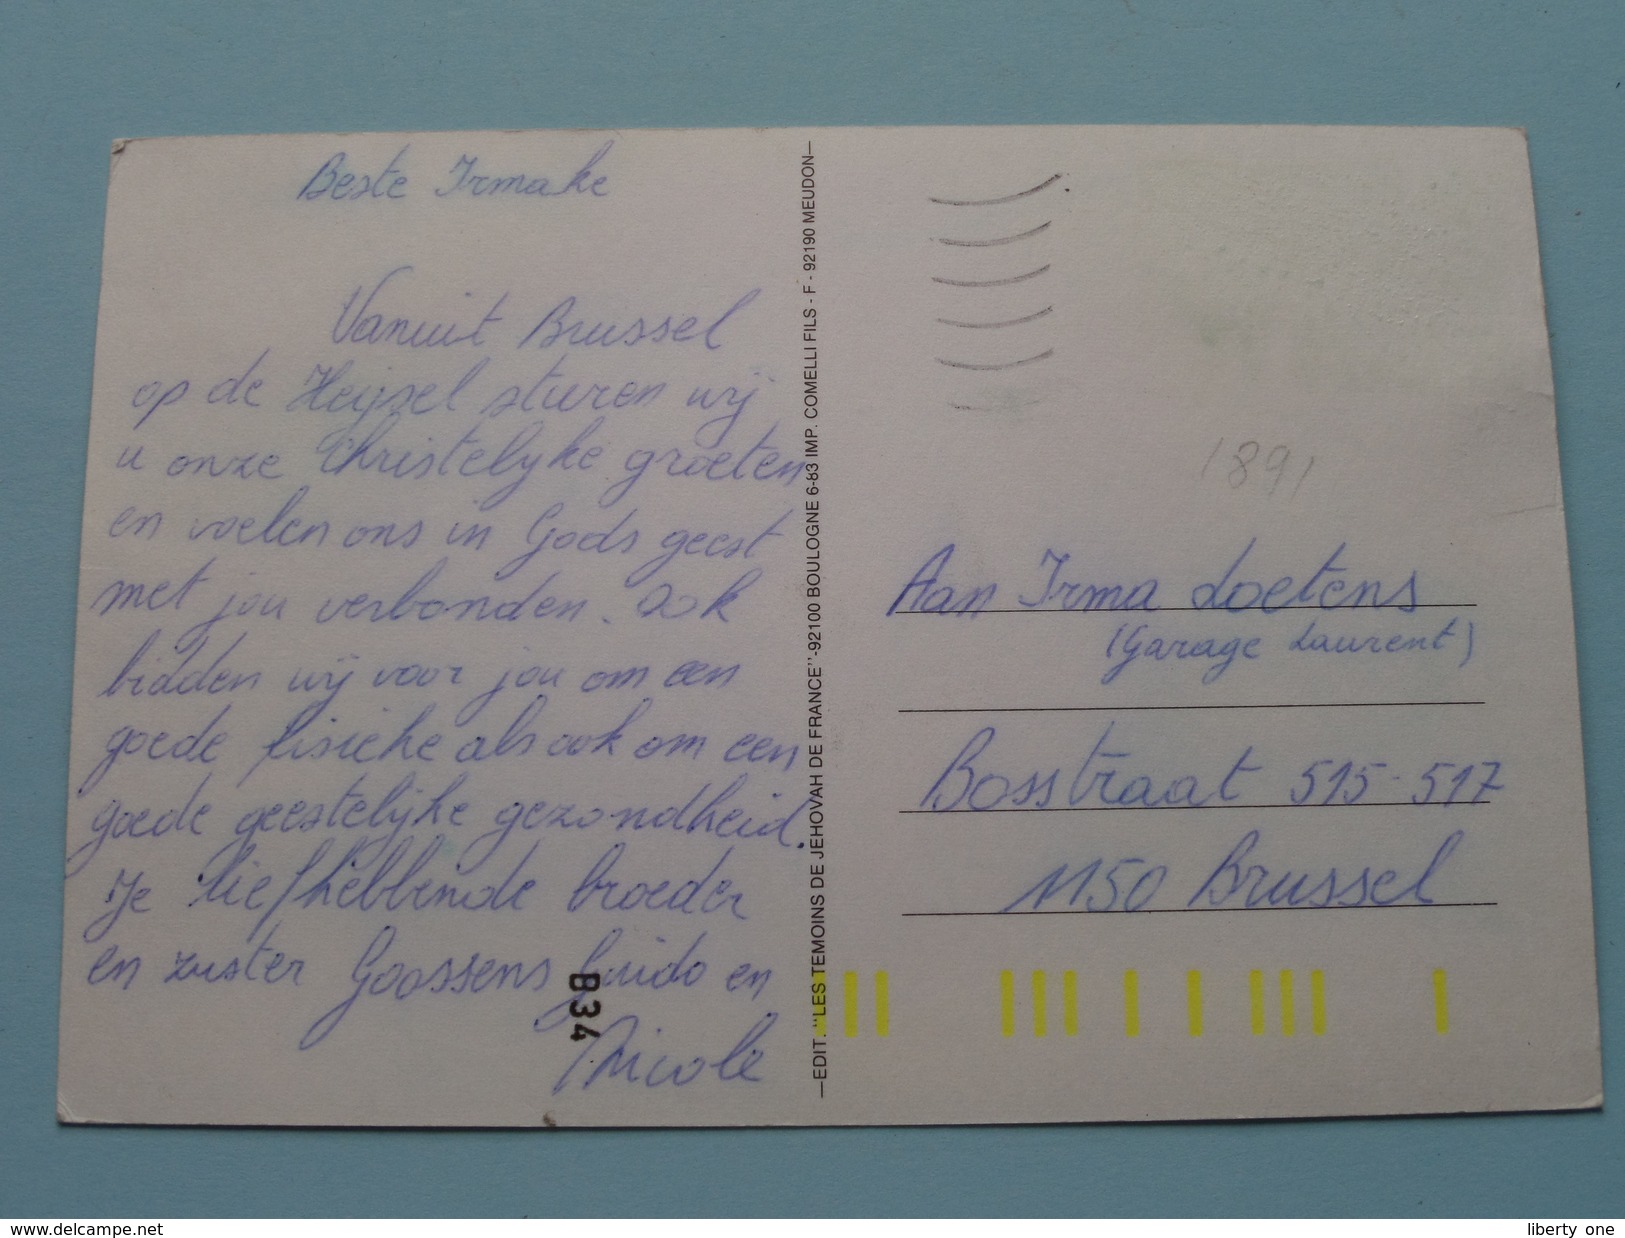 Beste Irmake
Vanuit Brussel
op de Heysel sturen wij
u onze Christelyke groeten
en voelen ons in Gods geest
met jou verbonden. Ook
bidden wij voor jou om een
goede fisieke als ook om een
goede geestelijke gezondheid.
Je liefhebbende broeder
en zuster Goossens Guido en
Nicole
B34
EDIT. "LES TEMOINS DE JEHOVAH DE FRANCE" - 92100 BOULOGNE 6-83 IMP. COMELLI FILS - F - 92190 MEUDON
1891
Aan Irma Loetens
(Garage Laurent)
Bosstraat 515-517
1150 Brussel
www.delcampe.net
liberty one